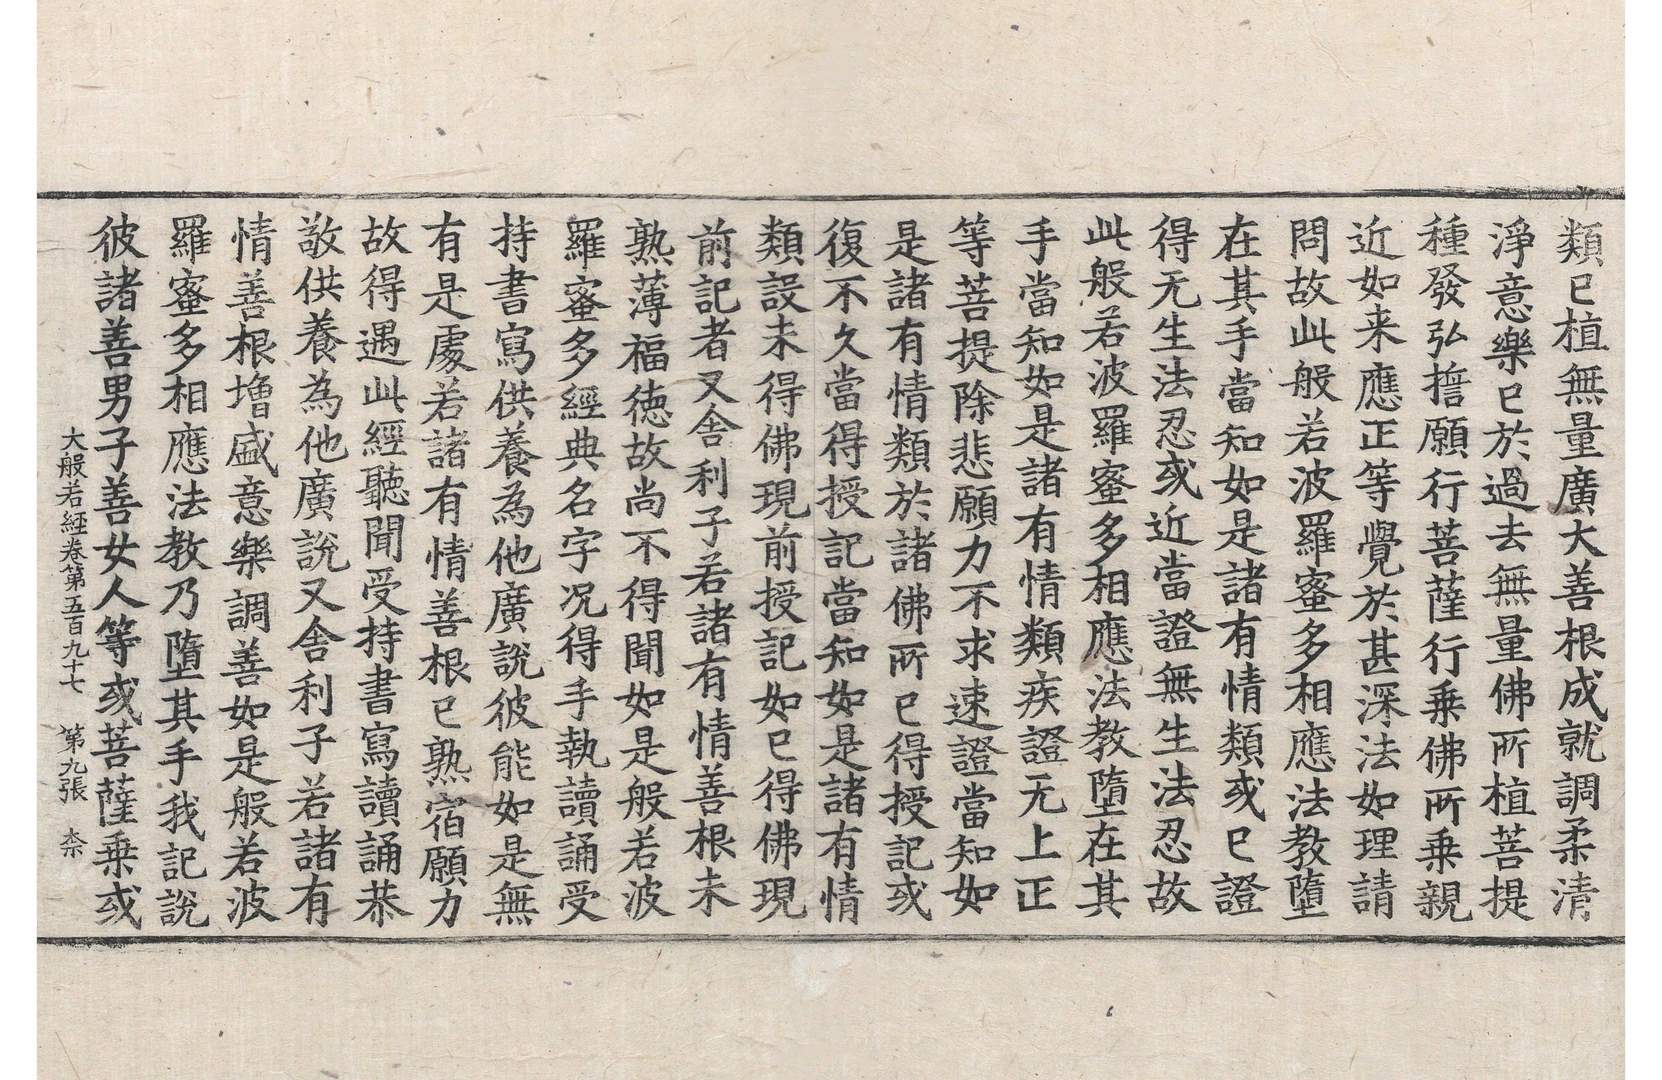 類已植無量廣大善根成就調柔清
淨意樂已於過去無量佛所植菩提
種發弘誓願行菩薩行乗佛所乗親
近如来應正等覺於甚深法如理請
問故此般若波羅蜜多相應法教墮
在其手當知如是諸有情類或已證
得无生法忍或近當證無生法忍故
此般若波羅蜜多相應法教墮在其
手當知如是諸有情類疾證无上正
等菩提除悲願力不求速證當知如
是諸有情類於諸佛所已得授記或
復不久當得授記當知如是諸有情
類設未得佛現前授記如已得佛現
前記者又舍利子若諸有情善根未
熟薄福徳故尚不得聞如是般若波
羅蜜多經典名字况得手執讀誦受
持書寫供養為他廣說彼能如是無
有是處若諸有情善根已熟宿願力
故得遇此經聽聞受持書寫讀誦恭
敬供養為他廣說又舍利子若諸有
情善根增盛意樂調善如是般若波
羅蜜多相應法教乃墮其手我記說
彼諸善男子善女人等或菩薩乗或
大般若經卷第五百九十七 第九張 柰